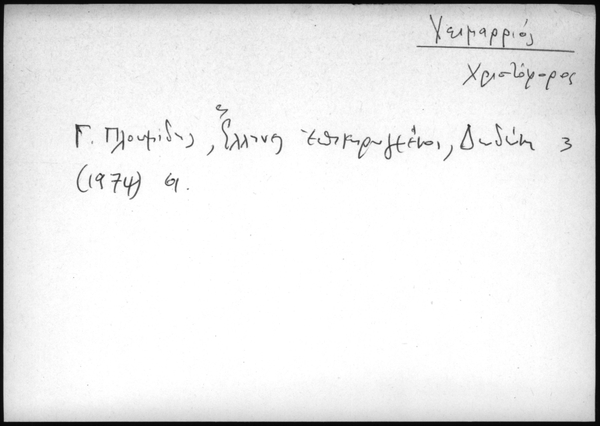 Χειμαρριός
Χριστόφορος
Γ. Πλουμίδης, Ἕλληνες ἐπικηρυγμένοι, Δωδώνη 3
(1974) 61.